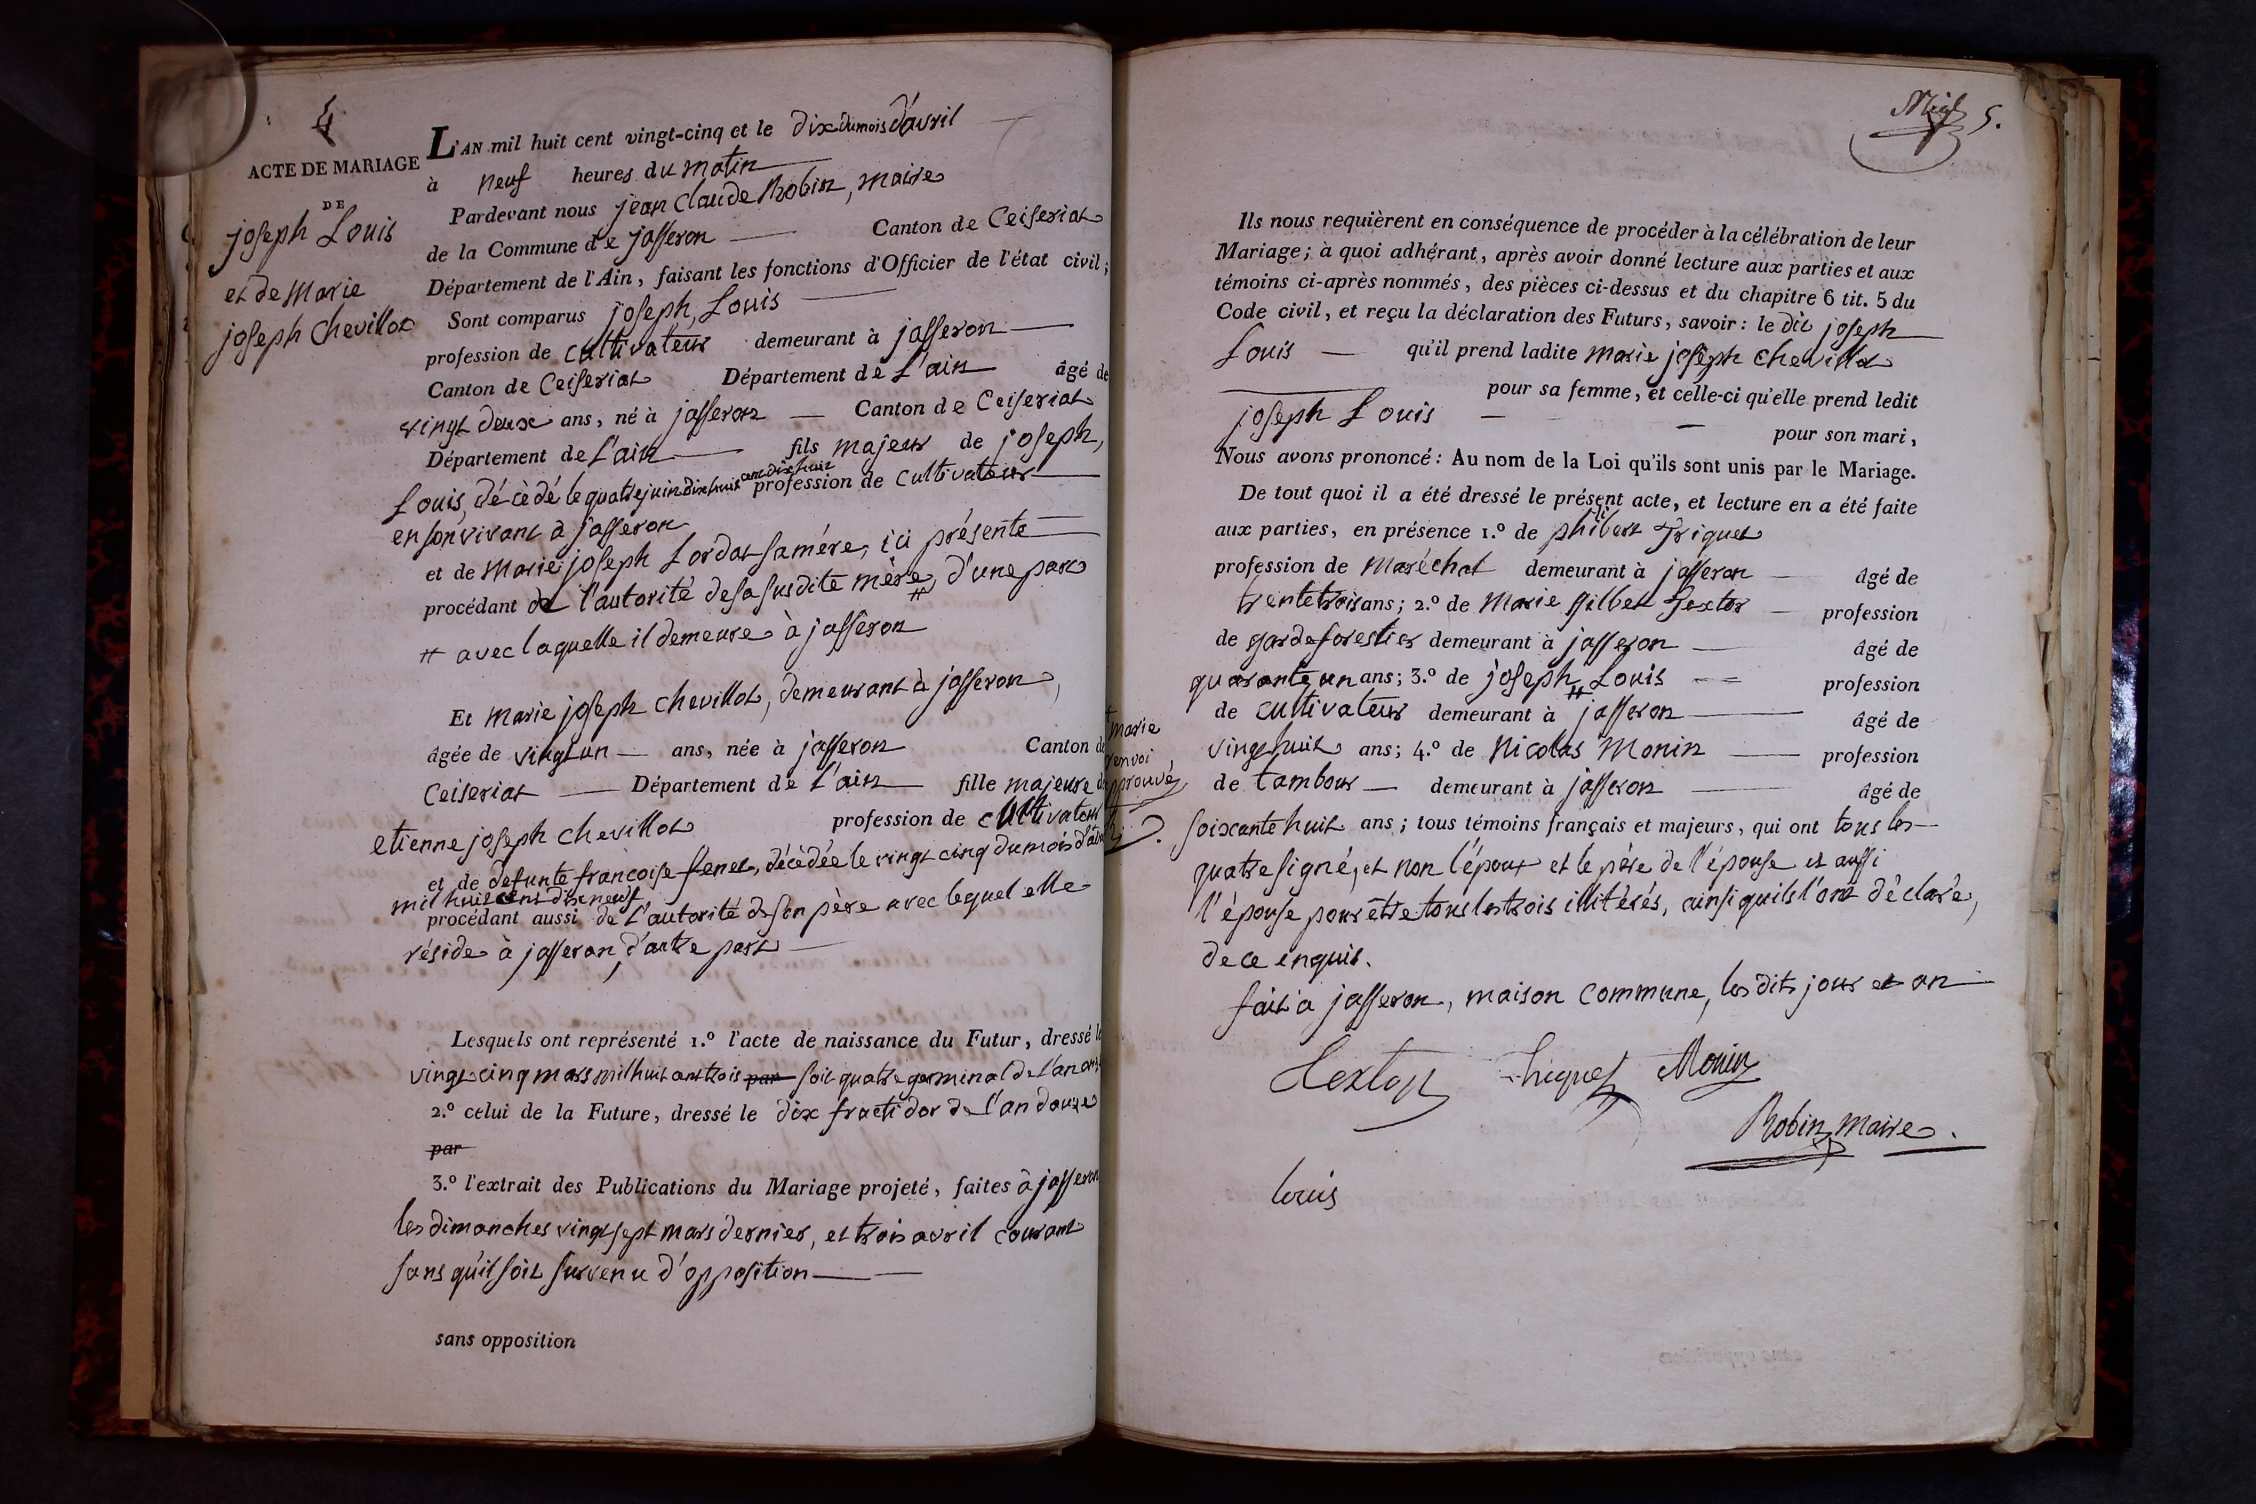 4
ACTE DE MARIAGE
DE
joseph Louis
et de Marie
joseph Chevillot
L'AN mil huit cent vingt-cinq et le dix du mois d'avril
à neuf heures du matin
Pardevant nous jean Claude Robin, maire
de la Commune de jasseron Canton de Ceiseriat
Département de l'Ain, faisant les fonctions d'Officier de l'état civil;
Sont comparus joseph, Louis
profession de cultivateur demeurant à jasseron
Canton de Ceiseriat Département de L'ain âgé de
vingt deux ans, né à jasseron Canton de Ceiseriat
Département de L'ain fils majeur de joseph,
Louis, décèdé le quatre juin dix huit cent dix huit profession de cultivateur
en son vivant à jasseron
et de marie joseph Lordat sa mére, ici présente
procédant de l'autorité de sa susdite mère, # d'une part
# avec laquelle il demeure à jasseron
Et marie joseph Chevillot, demeurant à jasseron,
âgée de vingt un ans, née à jasseron Canton de
Ceiseriat Département de L'ain fille majeure de
etienne joseph chevillot profession de cultivateur
et de defunte francoise fenet, décédée le vingt cinq du mois d'
mil huit cent dix neuf
procédant aussi de L'autorité de son père avec lequel elle
réside à jasseron, d'autre part
Lesquels ont représenté 1.º l'acte de naissance du Futur, dressé le
vingt cinq mars mil huit cent trois par soit quatre germinal de l'an
2.º celui de la Future, dressé le dix fructidor de l'an douze
par
3.º l'extrait des Publications du Mariage projeté, faites à jasseron
les dimanches vingt sept mars dernier, et trois avril courant
sans qu'il soit survenu d'opposition
sans opposition
5.
Ils nous requièrent en conséquence de procéder à la célébration de leur
Mariage; à quoi adhérant, après avoir donné lecture aux parties et aux
témoins ci-après nommés, des pièces ci-dessus et du chapitre 6 tit. 5 du
Code civil, et reçu la déclaration des Futurs, savoir: le dit joseph
Louis qu'il prend ladite marie joseph chevillot
pour sa femme, et celle-ci qu'elle prend ledit
joseph Louis pour son mari,
Nous avons prononcé: Au nom de la Loi qu'ils sont unis par le Mariage.
De tout quoi il a été dressé le présent acte, et lecture en a été faite
aux parties, en présence 1.º de philibert Triquet
profession de Maréchal demeurant à jasseron âgé de
trente trois ans; 2.º de Marie Gilbet Textor profession
de garde forestier demeurant à jasseron âgé de
quarante un ans; 3.º de joseph # Louis profession
de cultivateur demeurant à jasseron âgé de
vingt huit ans; 4.º de Nicolas Monin profession
de tambour demeurant à jasseron âgé de
# marie
renvoi
approuvé
soixante huit ans; tous témoins français et majeurs, qui ont tous les
quatre signé, et non l'époux et le père de l'épouse et aussi
l'épouse pour être tous les trois illitérés, ainsi qu'ils l'ont déclaré,
de ce enquis.
fait à jasseron, maison commune, les dits jour et an
Textor Triquet Monin
Robin, maire.
louis